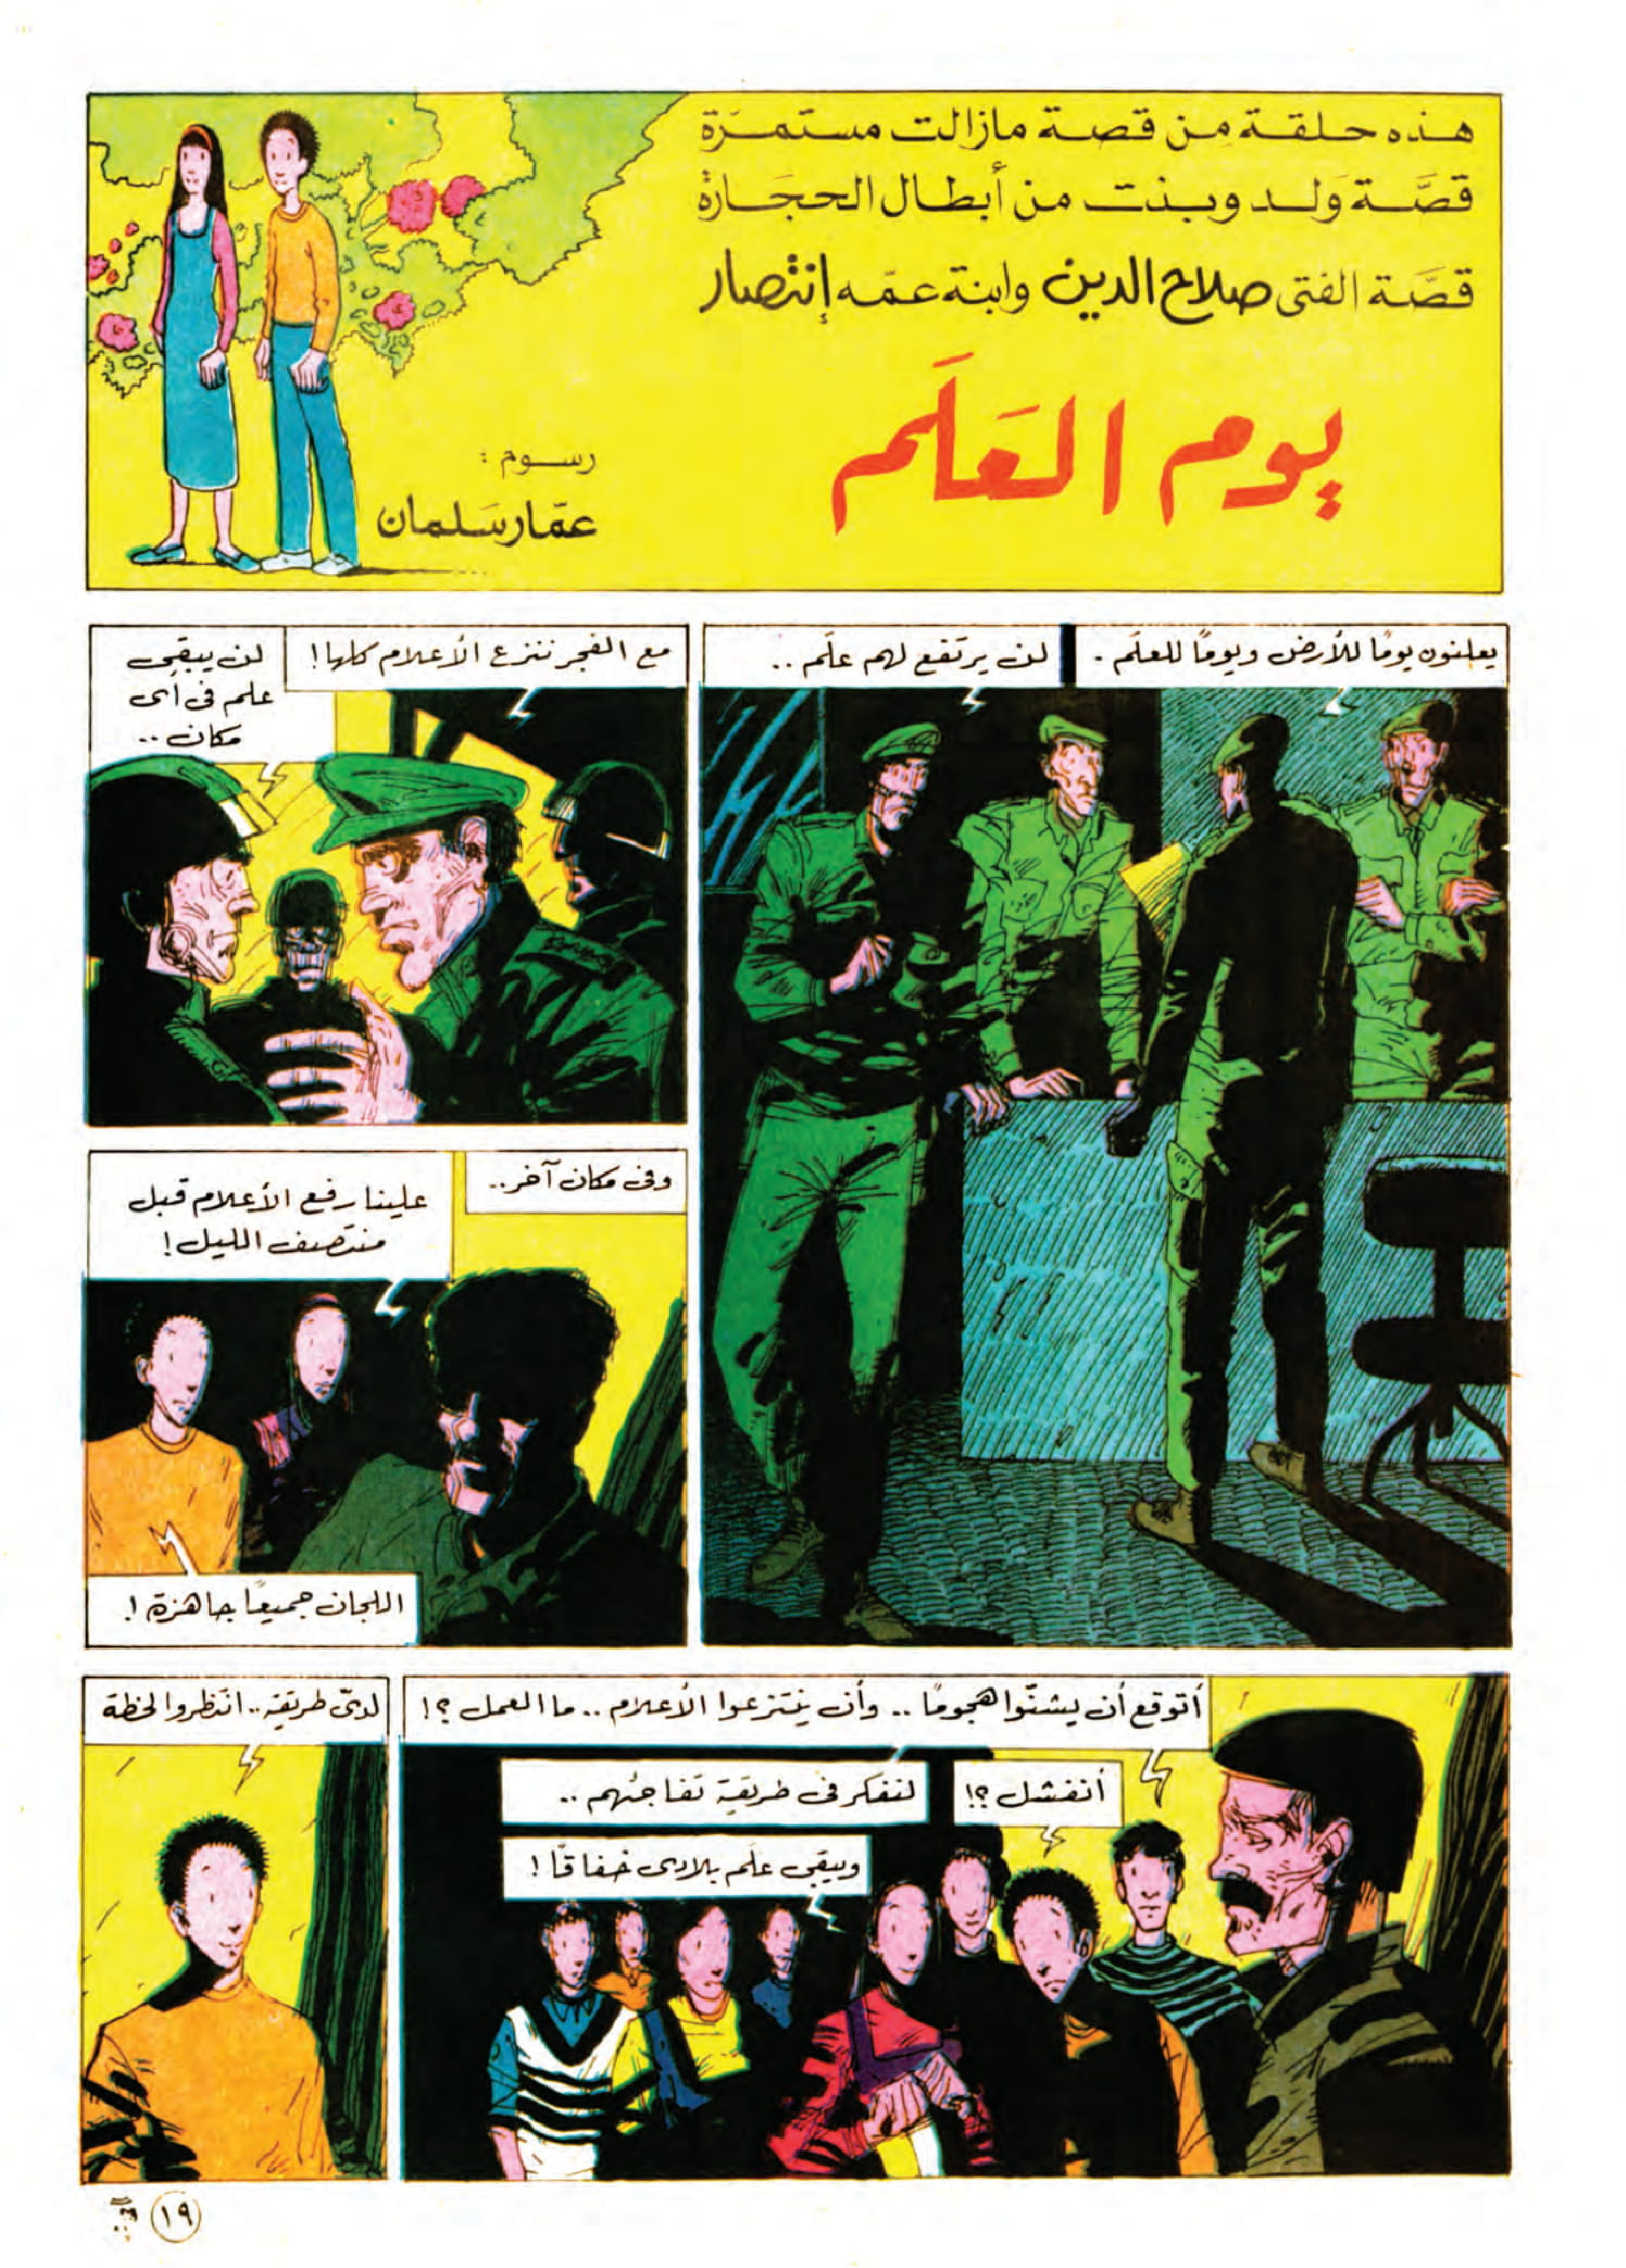 هذه حلقة من قصة مازالت مستمرة
قصَّة وَلد وبنت من أبطال الحجَارة
قصَّة الفتى صلاح الدين وابنة عمّه إنتصار
يوم العَلَم
رسوم :
عمّار سَلمان
يعلنون يومًا للأرض ويومًا للعلَم .
لن يرتفع لهم علَم ..
مع الفجر ننزع الأعلام كلها !
لن يبقى
علم فى أى
مكان ..
وفى مكان آخر ..
علينا رفع الأعلام قبل
منتصف الليل !
اللجان جميعًا جاهزة !
أتوقع أن يشنّوا هجومًا .. وأن ينتزعوا الأعلام .. ما العمل ؟!
أنفشل ؟!
لنفكر فى طريقة تفاجئهم ..
ويبقى علَم بلادى خفاقًا !
لدىّ طريقة .. انتظروا لحظة
١٩